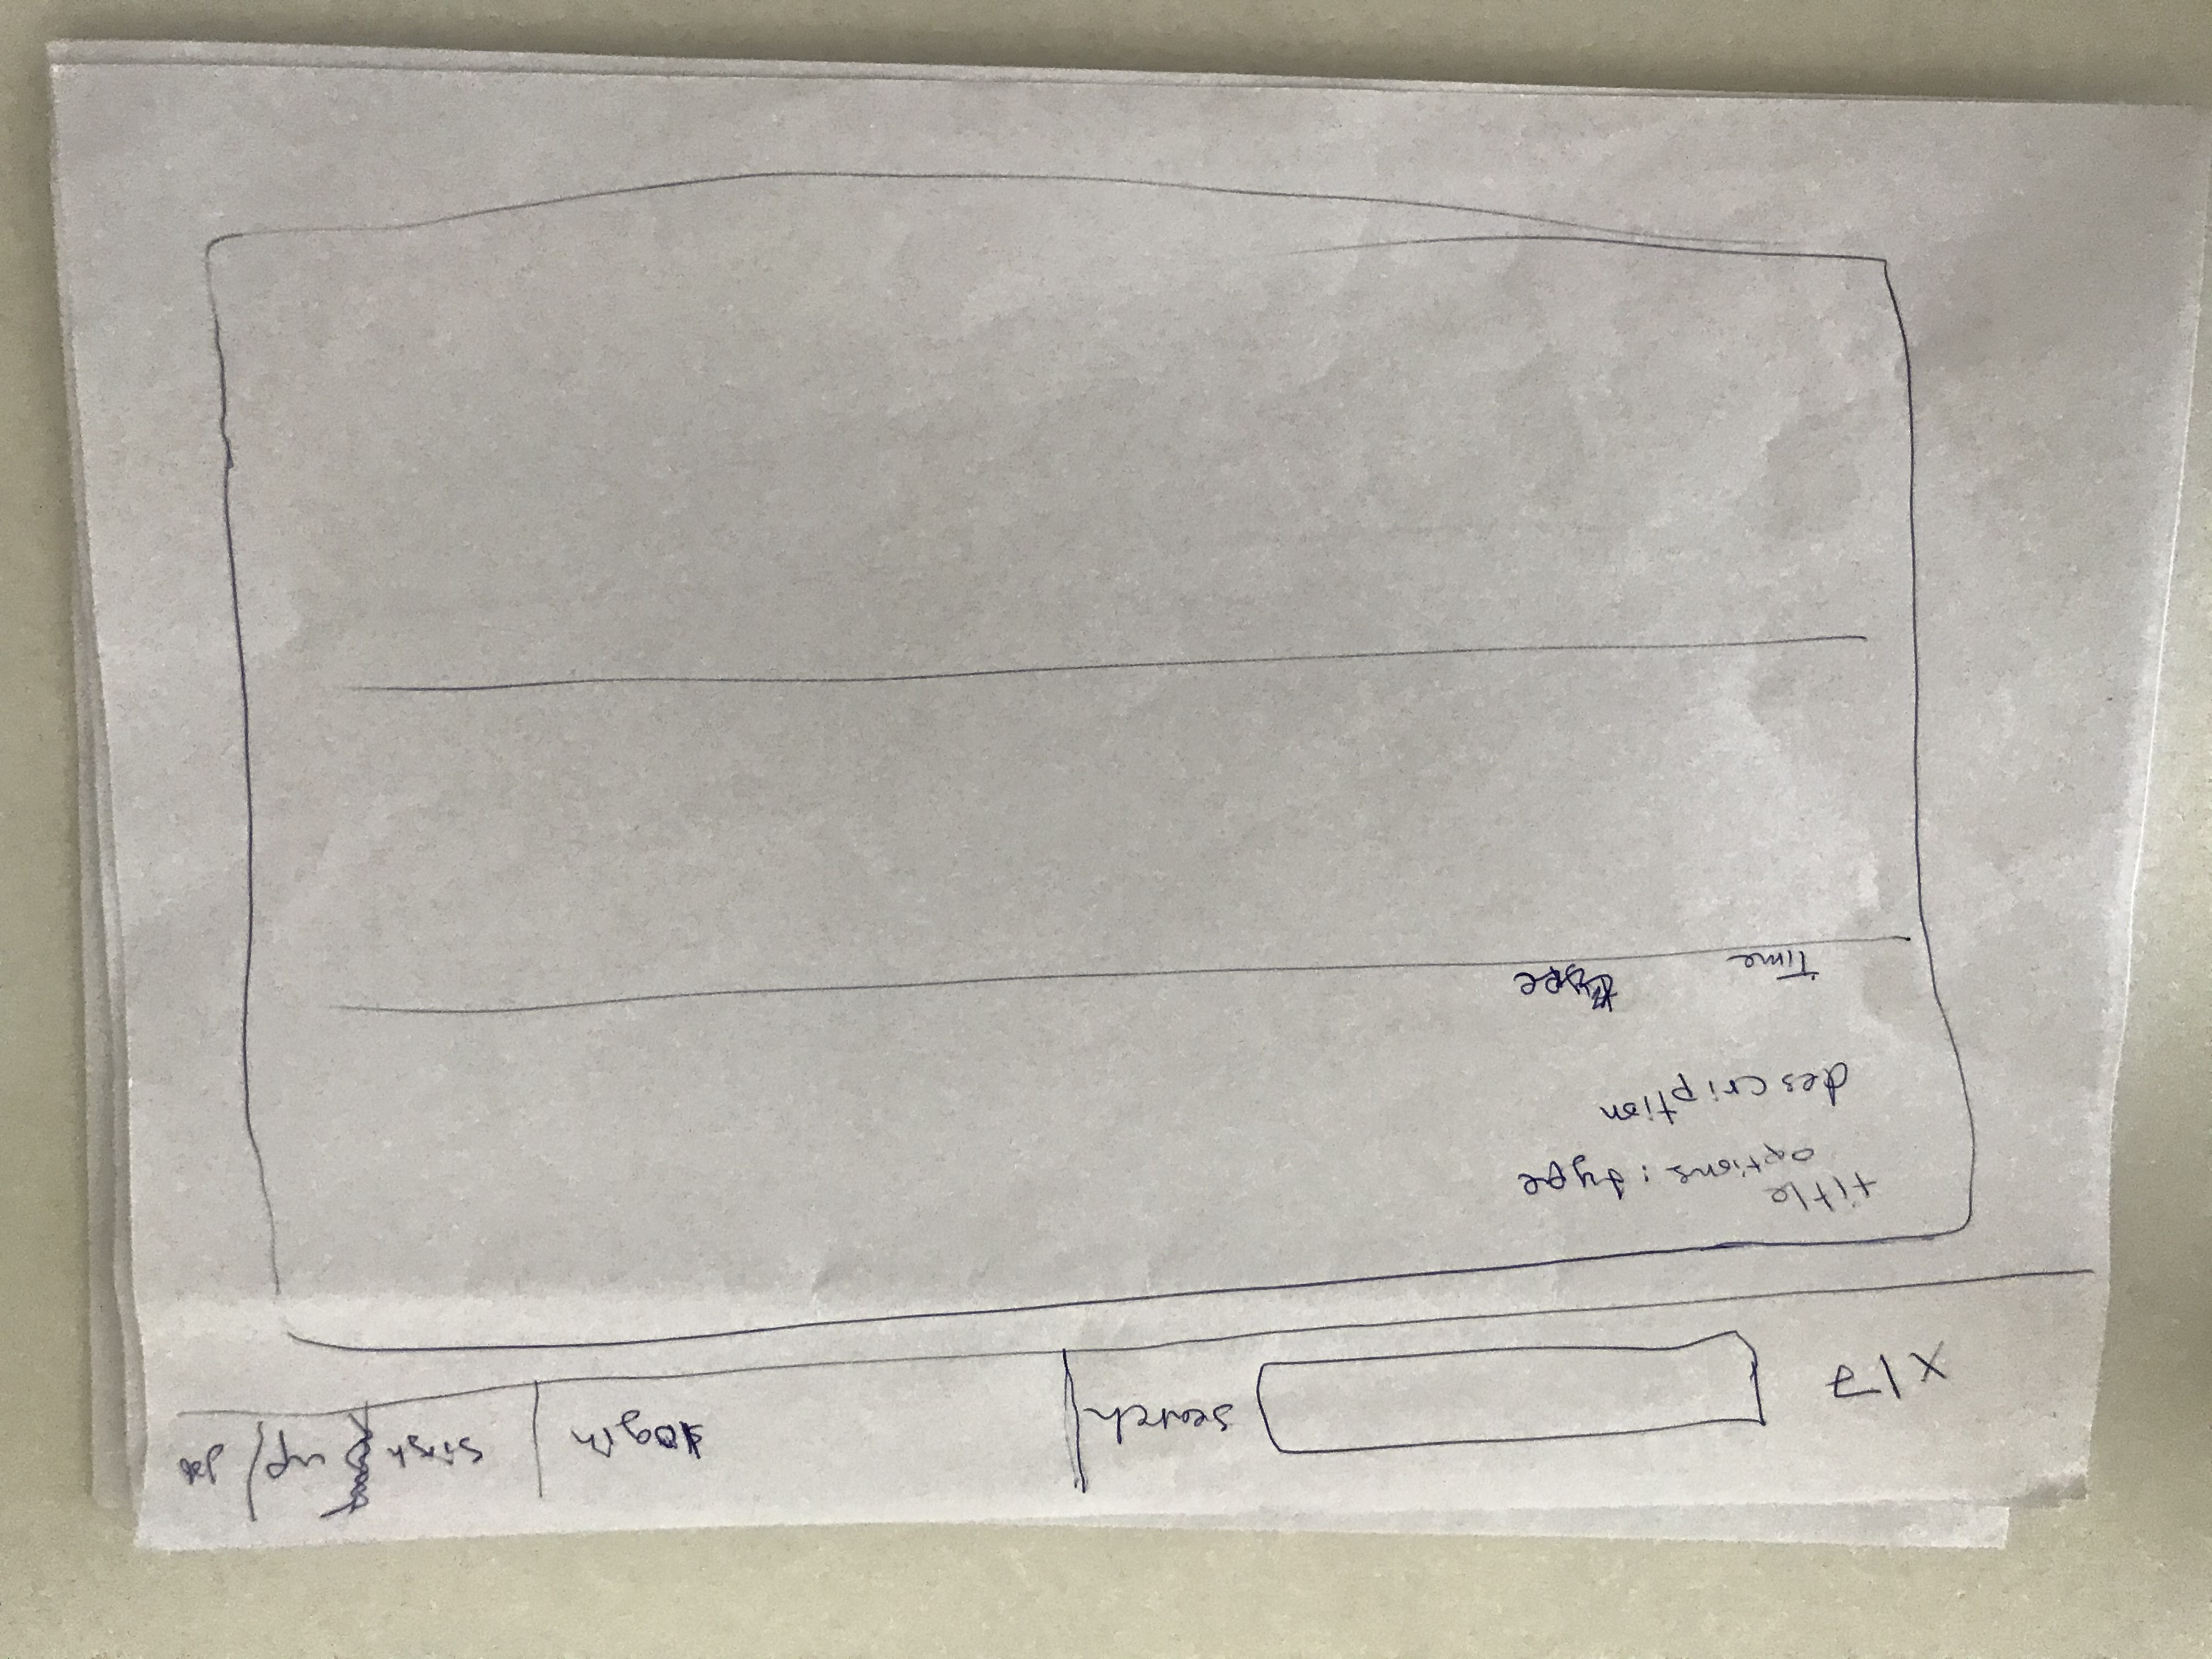 x17 search login up
title
options: type
description
Time type